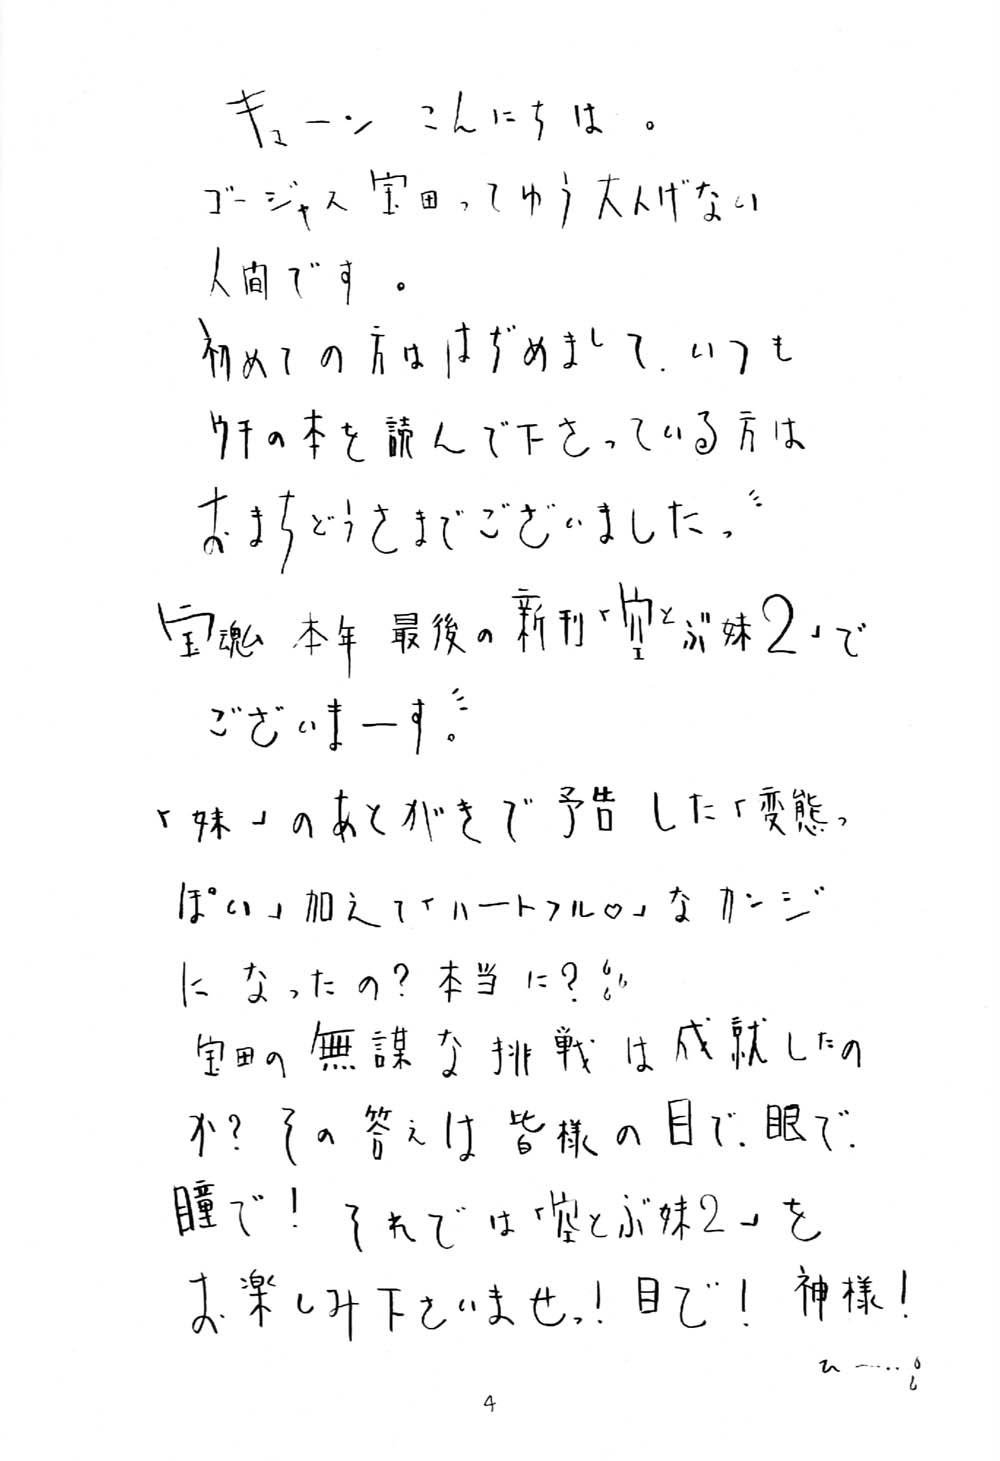 キューン こんにちは。
ゴージャス宝田ってゆう大人げない
人間です。
初めての方ははぢめまして、いつも
ウチの本を読んで下さっている方は
おまちどうさまでございましたっ
宝魂 本年 最後の新刊「空とぶ妹2」で
ございまーす。
「妹」のあとがきで予告した「変態っ
ぽい」加えて「ハートフル♡」なカンジ
になったの?本当に?
宝田の無謀な挑戦は成就したの
か?その答えは皆様の目で、眼で、
瞳で!それでは「空とぶ妹2」を
お楽しみ下さいませっ!目で!神様!
ひー‥‥
4